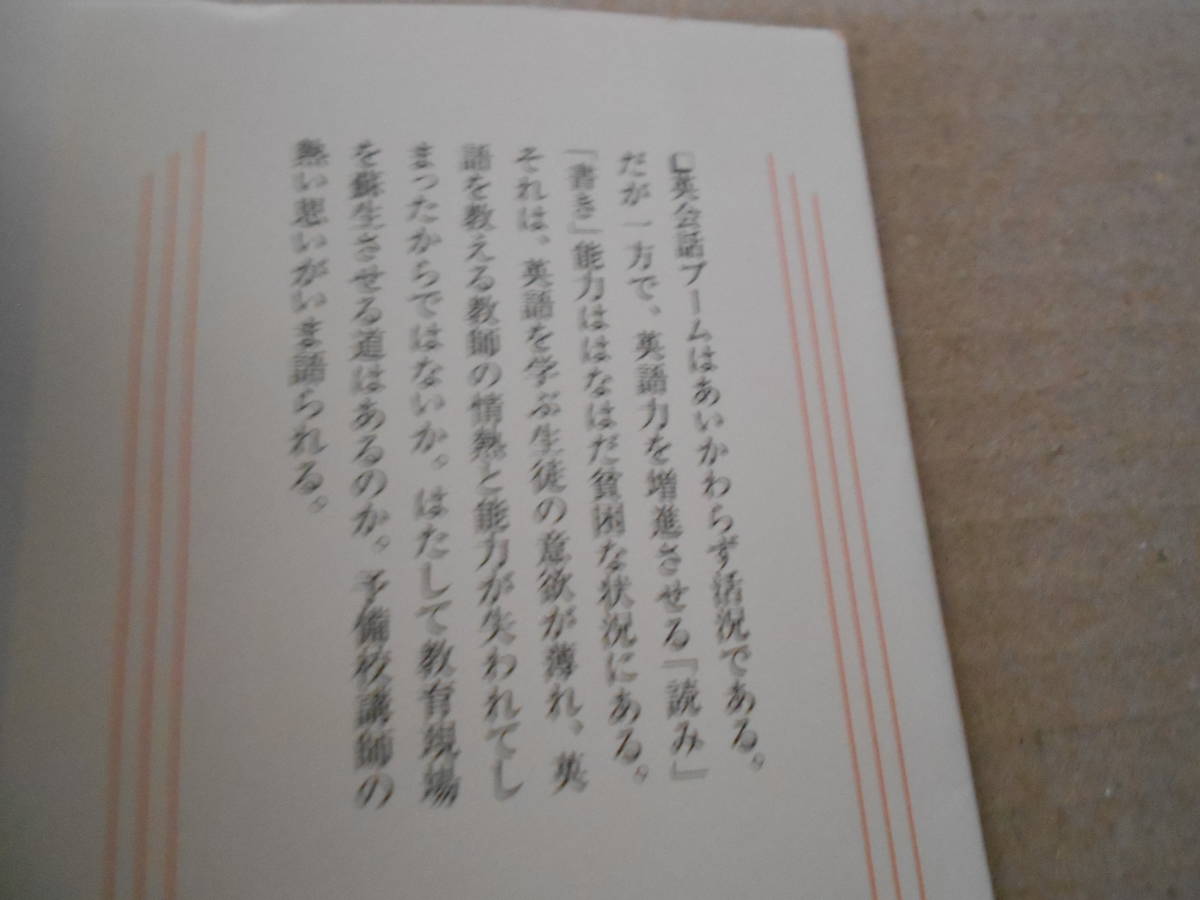 □英会話ブームはあいかわらず活況である。
だが一方で、英語力を増進させる「読み」
「書き」能力ははなはだ貧困な状況にある。
それは、英語を学ぶ生徒の意欲が薄れ、英
語を教える教師の情熱と能力が失われてし
まったからではないか。はたして教育現場
を蘇生させる道はあるのか。予備校講師の
熱い思いがいま語られる。